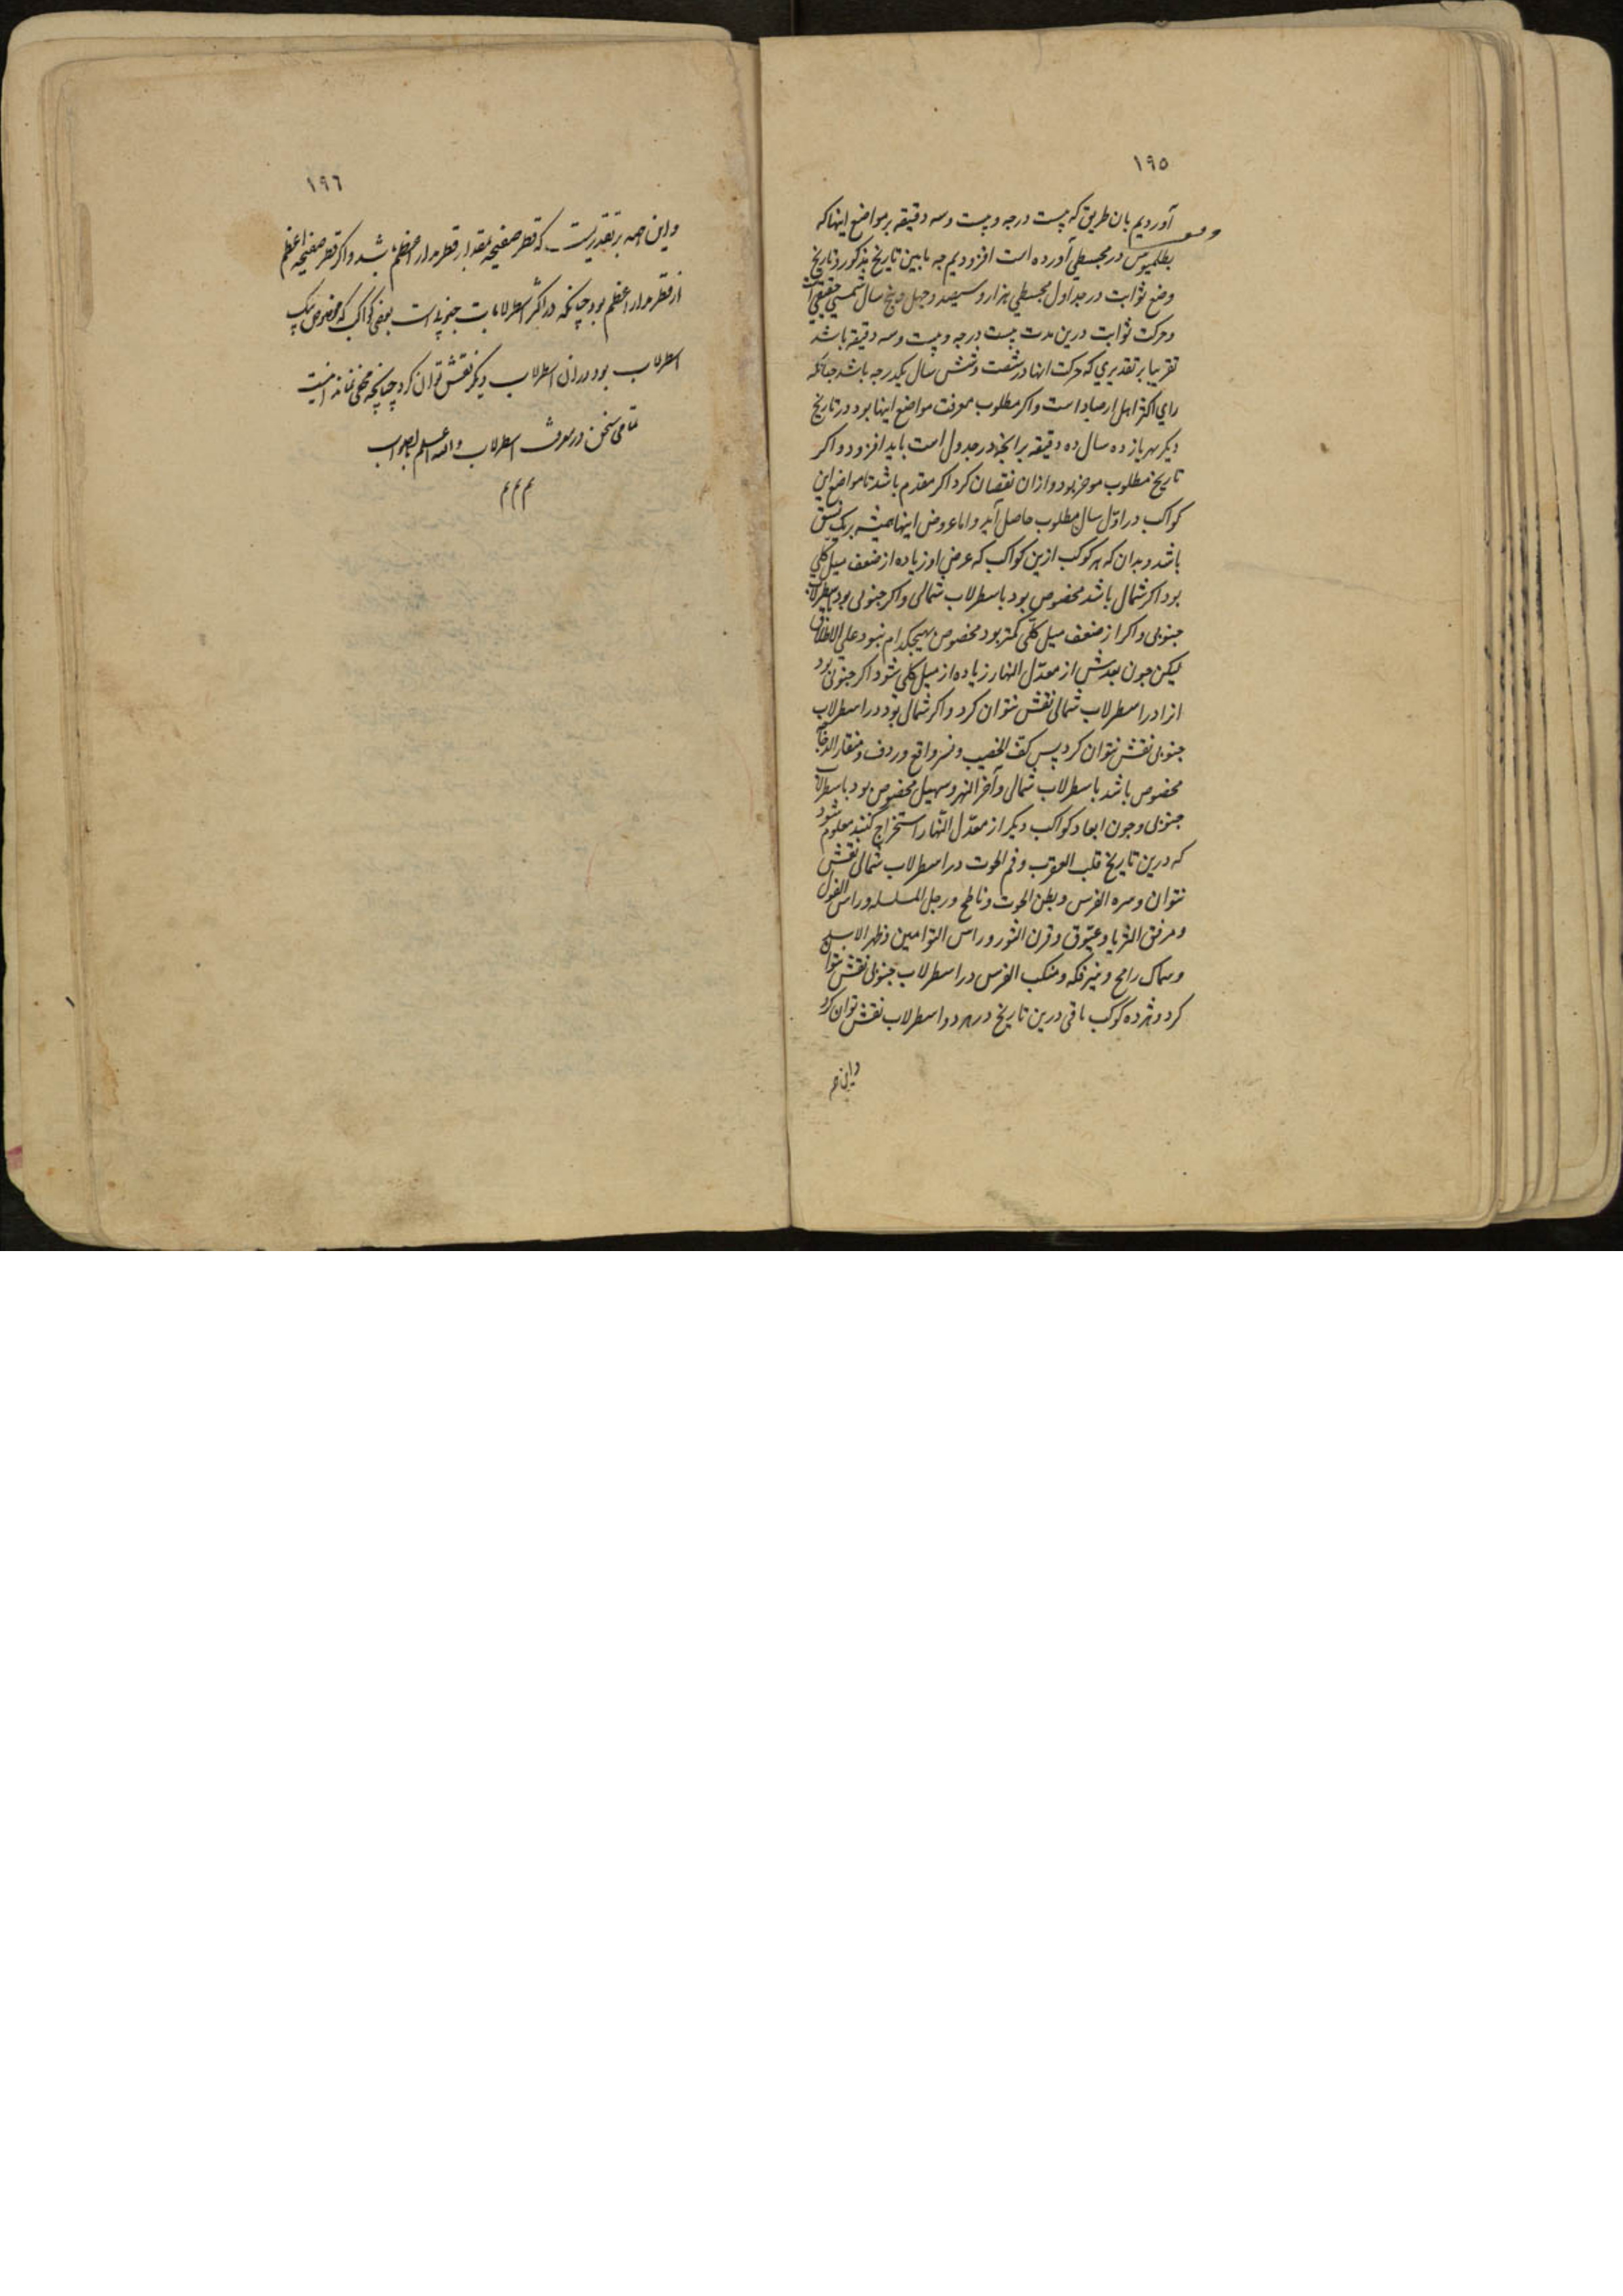 ١٩٥
آوردیم بان طریق که بیست درجه و بیست و سه دقیقه بر مواضع اینها که
بطلمیوس در مجسطی آورده است افزودیم جه مابین تاریخ مذکور و تاریخ
وضع ثوابت در جداول مجسطی هزار و سیصد و جهل و پنج سال شمسی حقیقی است
و حرکت ثوابت درین مدت بیست درجه و بیست و سه دقیقه باشد
تقریبا بر تقدیری که حرکت انها در شصت و شش سال یکدرجه باشد جنانکه
رای اکثر اهل ارصاد است واکر مطلوب معرفت مواضع اینها بود در تاریخ
دیکر بهر یازده سال ده دقیقه بر انجه در جدول است باید افزود و اکر
تاریخ مطلوب موخر بود و ازان نقصان کرد اکر مقدم باشد تا مواضع این
کواکب در اوّل سال مطلوب حاصل آید و اما عروض اینها همیشه بریک نسق
باشد و بدان که هر کوکب ازین کواکب که عرض او زیاده از ضعف میل کلی
بود اکر شمال باشد مخصوص بود باسطرلاب شمالی و اکر جنوبی بود باسطرلاب
جنوبی و اکر از ضعف میل کلّی کمتر بود مخصوص بهیجکدام نبود علی الاطلاق
لیکن جون بعدش از معدّل النهار زیاده از میل کلی شود اکر جنوبی بود
انرا در اسطرلاب شمالی نقش نتوان کرد و اکر شمالی بود در اسطرلاب
جنوبی نقش نتوان کرد پس کف الخضیب و نسر واقع و ردف و منقار الدجاجه
مخصوص باشد باسطرلاب شمالی و آخر النهر و سهیل مخصوص بود باسطرلاب
جنوبی و جون ابعاد کواکب دیکر از معدّل النّهار استخراج کنند معلوم شود
که درین تاریخ قلب العقرب و فم الحوت در اسطرلاب شمالی نقش
نتوان و سره الفرس و بطن الحوت و ناطح و رجل المسلسله و راس الغول
و مرفق الثریا و عیّوق و قرن الثور و راس التوامین و ظهر الاسد
و سماک رامح و نیر فکه و منکب الفرس در اسطرلاب جنوبی نقش نتوان
کرد و هژده کوکب باقی درین تاریخ در هر دو اسطرلاب نقش توان کرد
و این هم
١٩٦
و این همه بر تقدیریست که قطر صفیحه بمقدار قطر مدار اعظم باشد و اکر قطر صفیحه اعظم
از قطر مدار اعظم بود چنانکه در اکثر اسطرلابات جنوبیه است بعضی کواکب که مخصوص بیک
اسطرلاب بود در ان اسطرلاب دیکر نقش توان کرد چنانچه مخفی نماند اینست
تمامی سخن در معرفت اسطرلاب والله اعلم بالصواب
م م م